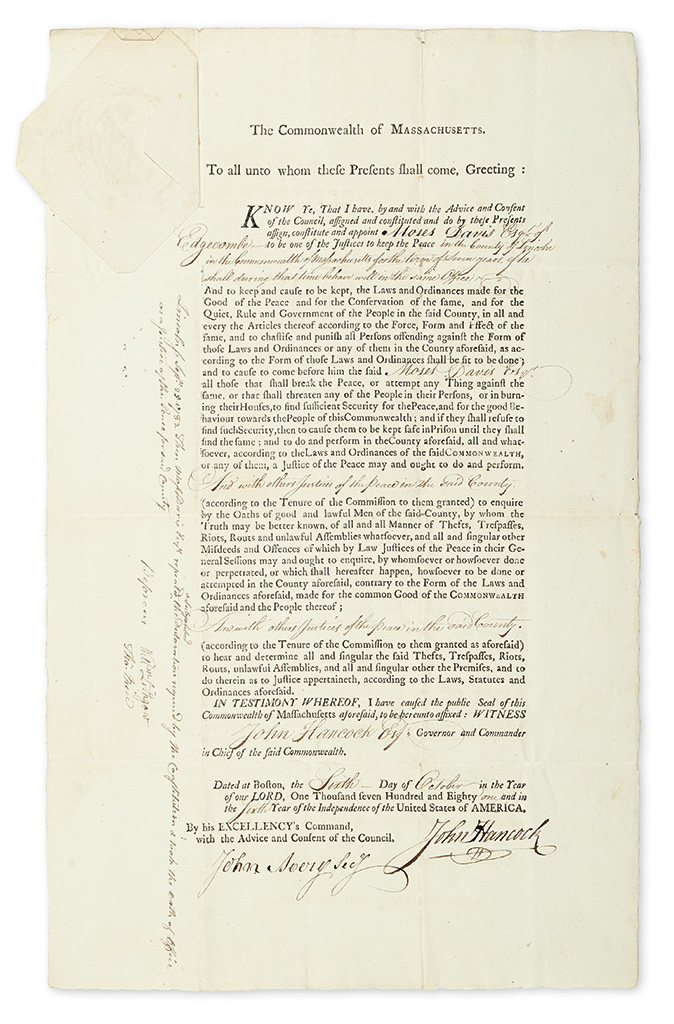 The Commonwealth of MASSACHUSETTS.
To all unto whom theſe Preſents ſhall come, Greeting :
KNOW Ye, That I have, by and with the Advice and Conſent
of the Council, aſſigned and conſtituted and do by theſe Preſents
aſſign, conſtitute and appoint Moses Davis Esqr. of
Edgecombe to be one of the Juſtices to keep the Peace in the County of Lincoln
in the Commonwealth of Massachusetts for the term of Seven years, if he
shall during that time behave well in the same Office
And to keep and cauſe to be kept, the Laws and Ordinances made for the
Good of the Peace and for the Conſervation of the ſame, and for the
Quiet, Rule and Government of the People in the ſaid County, in all and
every the Articles thereof according to the Force, Form and Effect of the
ſame, and to chaſtiſe and puniſh all Perſons offending againſt the Form of
thoſe Laws and Ordinances or any of them in the County aforeſaid, as ac-
cording to the Form of thoſe Laws and Ordinances ſhall be fit to be done;
and to cauſe to come before him the ſaid Moses Davis Esqr.
all thoſe that ſhall break the Peace, or attempt any Thing againſt the
ſame, or that ſhall threaten any of the People in their Perſons, or in burn-
ing their Houſes, to find ſufficient Security for the Peace, and for the good Be-
haviour towards the People of this Commonwealth; and if they ſhall refuſe to
find ſuch Security, then to cauſe them to be kept ſafe in Priſon until they ſhall
find the ſame; and to do and perform in the County aforeſaid, all and what-
ſoever, according to the Laws and Ordinances of the ſaid COMMONWEALTH,
or any of them, a Juſtice of the Peace may and ought to do and perform.
And with others Justices of the Peace in the said County.
(according to the Tenure of the Commiſſion to them granted) to enquire
by the Oaths of good and lawful Men of the ſaid County, by whom the
Truth may be better known, of all and all Manner of Thefts, Treſpaſſes,
Riots, Routs and unlawful Aſſemblies whatſoever, and all and ſingular other
Miſdeeds and Offences of which by Law Juſtices of the Peace in their Ge-
neral Seſſions may and ought to enquire, by whomſoever or howſoever done
or perpetrated, or which ſhall hereafter happen, howſoever to be done or
attempted in the County aforeſaid, contrary to the Form of the Laws and
Ordinances aforeſaid, made for the common Good of the COMMONWEALTH
aforeſaid and the People thereof;
And with others Justices of the Peace in the said County.
(according to the Tenure of the Commiſſion to them granted as aforeſaid)
to hear and determine all and ſingular the ſaid Thefts, Treſpaſſes, Riots,
Routs, unlawful Aſſemblies, and all and ſingular other the Premiſes, and to
do therein as to Juſtice appertaineth, according to the Laws, Statutes and
Ordinances aforeſaid.
IN TESTIMONY WHEREOF, I have cauſed the public Seal of this
Commonwealth of Maſſachuſetts aforeſaid, to be hereunto affixed: WITNESS
John Hancock Esqr. Governor and Commander
in Chief of the ſaid Commonwealth.
Dated at Boſton, the Sixth Day of October in the Year
of our LORD, One Thouſand ſeven Hundred and Eighty one, and in
the Sixth Year of the Independence of the United States of AMERICA.
By his EXCELLENCY's Command,
with the Advice and Conſent of the Council,
John Hancock
John Avery Secy
Lincoln ss Septr. 1782 Then Moses Davis Esqr. repeated & subscribed the declaration required by the Constitution & took the oath of Office
as a Justice of the Peace for said County
Before us
Wm Lithgow